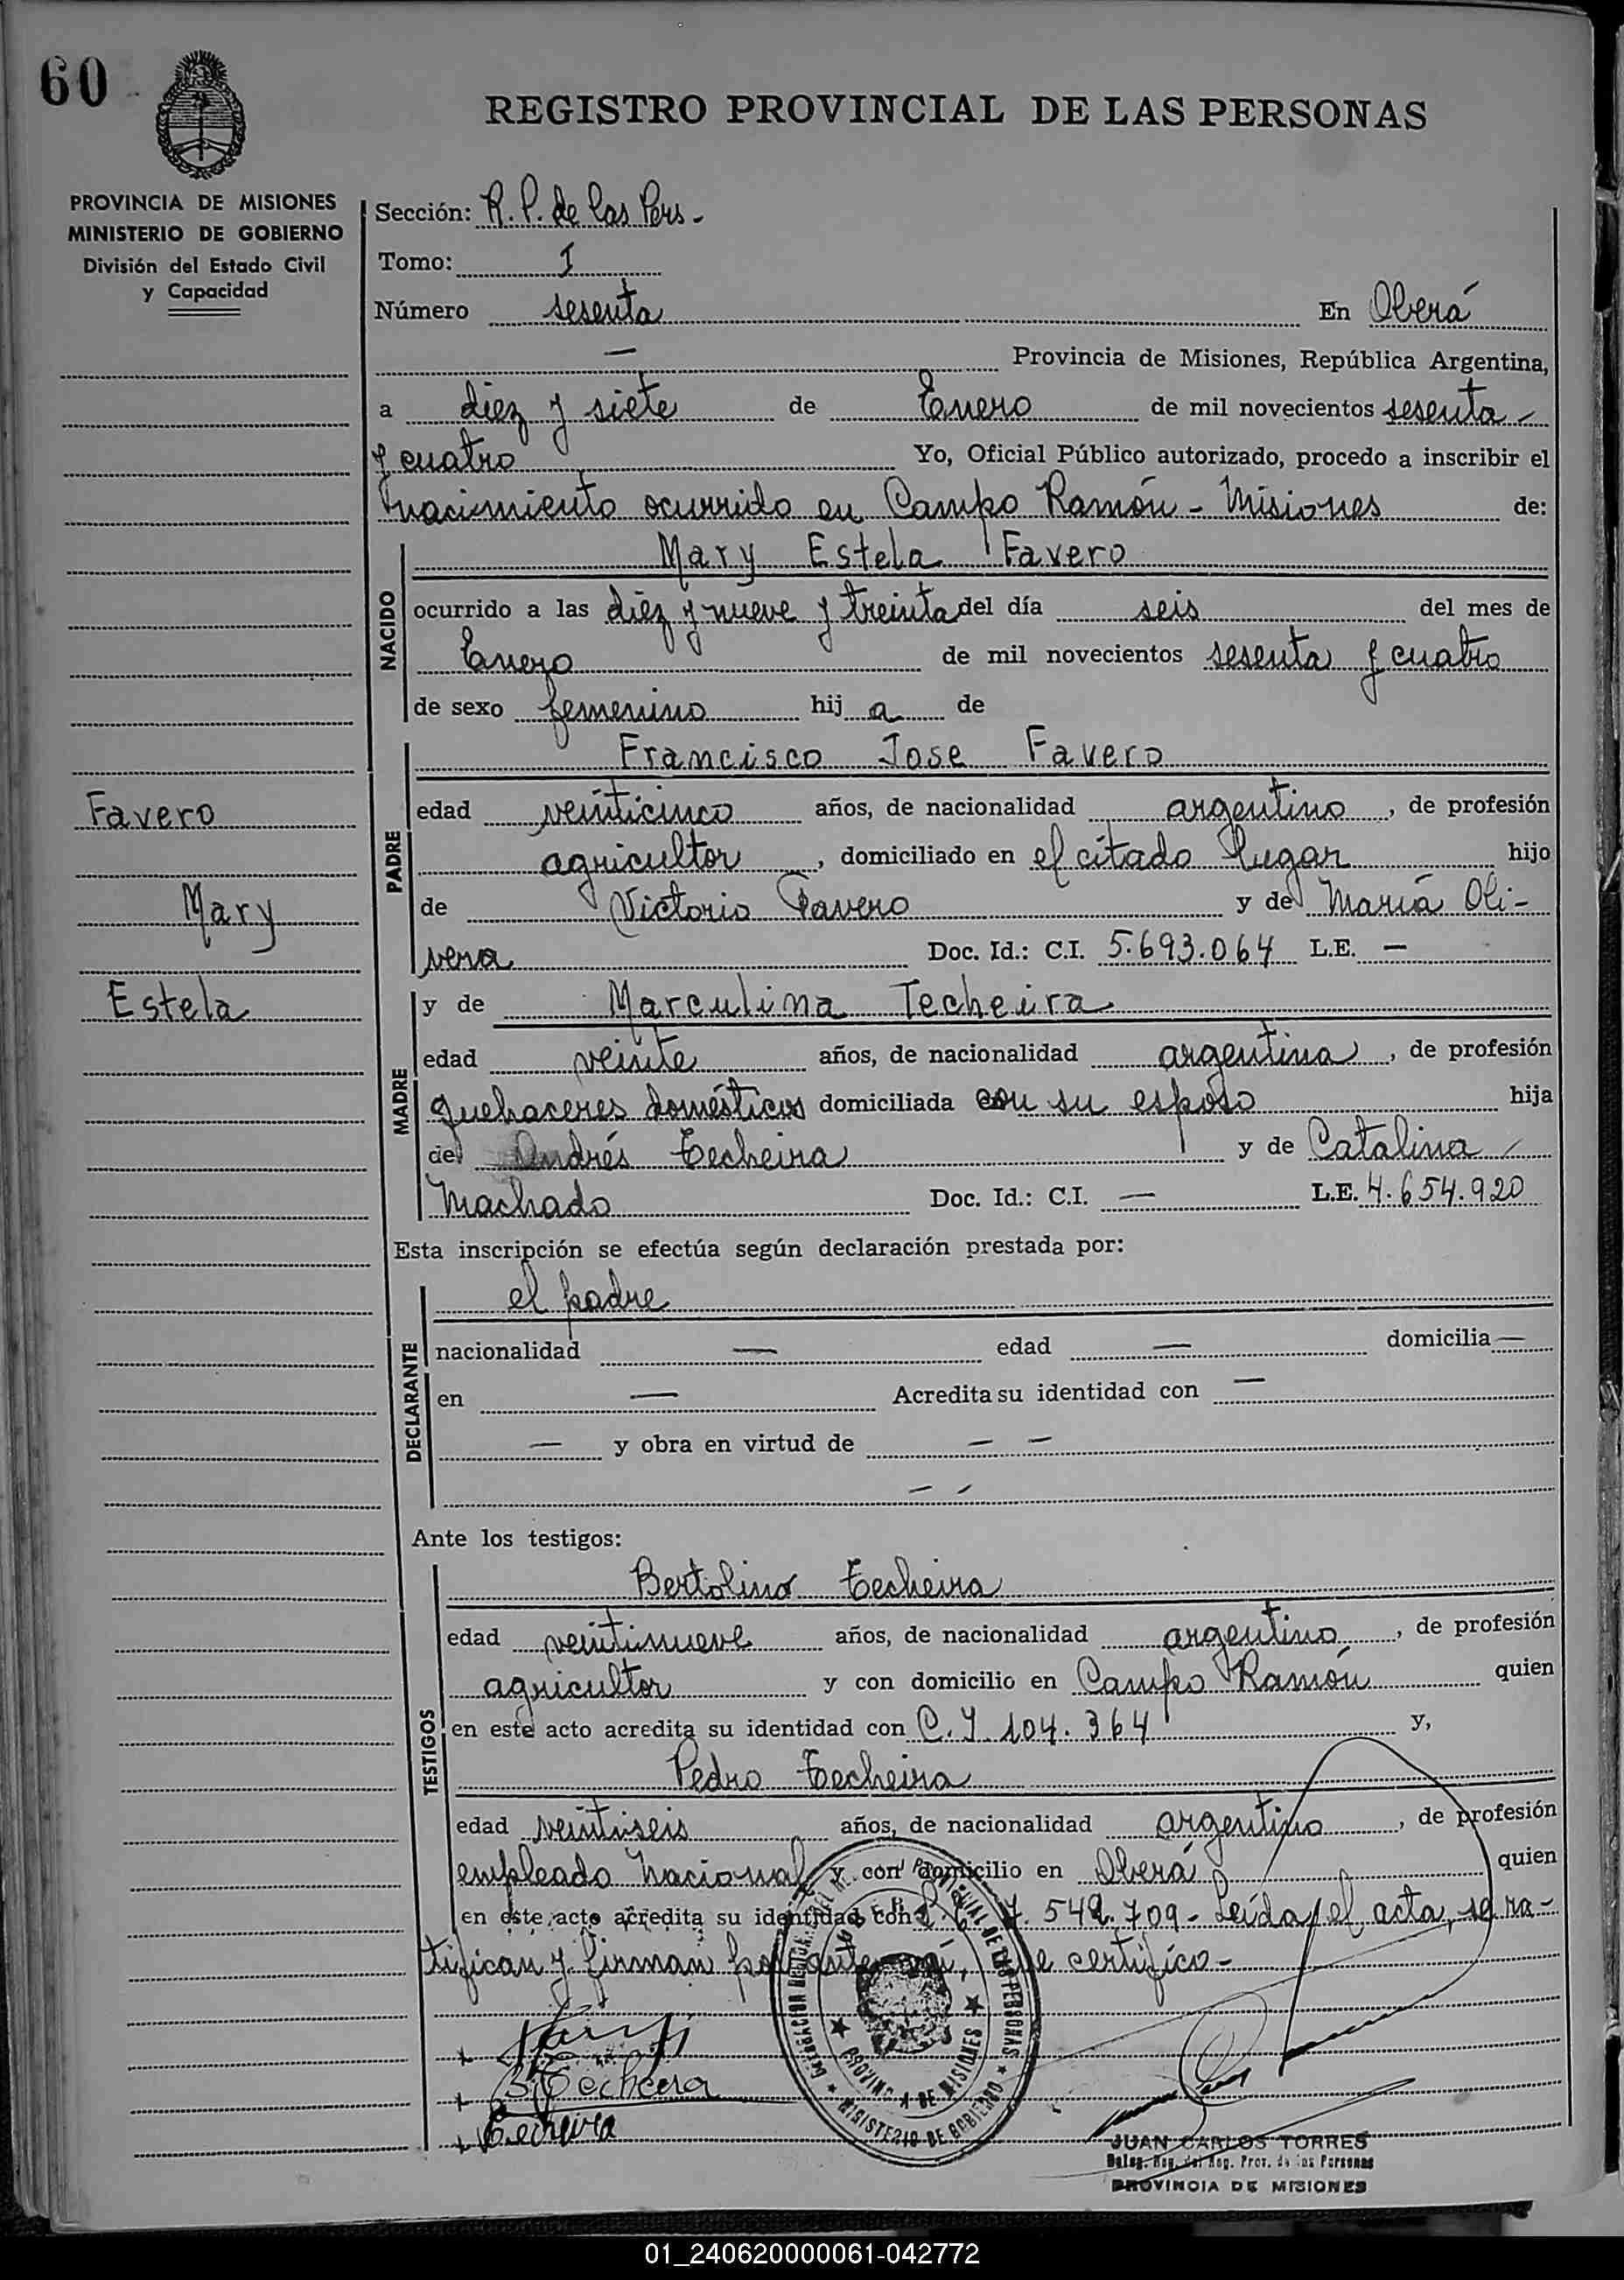 60
REGISTRO PROVINCIAL DE LAS PERSONAS
PROVINCIA DE MISIONES
MINISTERIO DE GOBIERNO
División del Estado Civil
y Capacidad
Sección: R. P. de las Pers -
Tomo: I
Número sesenta En Oberá
— Provincia de Misiones, República Argentina,
a diez y siete de Enero de mil novecientos sesenta -
y cuatro Yo, Oficial Público autorizado, procedo a inscribir el
nacimiento ocurrido en Campo Ramón - Misiones de:
NACIDO
Mary Estela Favero
ocurrido a las diez y nueve y treinta del día seis del mes de
Enero de mil novecientos sesenta y cuatro
de sexo femenino hij a de
PADRE
Francisco Jose Favero
Favero
edad veinticinco años, de nacionalidad argentino, de profesión
agricultor, domiciliado en el citado lugar hijo
Mary
de Victorio Favero y de María Oli-
vera Doc. Id.: C.I. 5.693.064 L.E. —
Estela
MADRE
y de Marculina Techeira
edad veinte años, de nacionalidad argentina, de profesión
quehaceres domésticos domiciliada con su esposo hija
de Andrés Techeira y de Catalina -
Machado Doc. Id.: C.I. — L.E. 4.654.920
Esta inscripción se efectúa según declaración prestada por:
DECLARANTE
el padre
nacionalidad — edad — domicilia —
en — Acredita su identidad con —
— y obra en virtud de — —
— -
Ante los testigos:
TESTIGOS
Bertolino Techeira
edad veintinueve años, de nacionalidad argentino, de profesión
agricultor y con domicilio en Campo Ramón quien
en este acto acredita su identidad con C. I 104.364 y,
Pedro Techeira
edad veintiseis años, de nacionalidad argentino, de profesión
empleado nacional y con domicilio en Oberá quien
en este acto acredita su identidad con 7.542.709 - Leída el acta, se ra-
tifican y firman por ante mí, que certifico -
B. Techeira
Techeira
PROVINCIAL DE LAS PERSONAS
PROVINCIA DE MISIONES
MINISTERIO DE GOBIERNO
JUAN CARLOS TORRES
Deleg. Reg. del Reg. Prov. de las Personas
PROVINCIA DE MISIONES
01_240620000061-042772